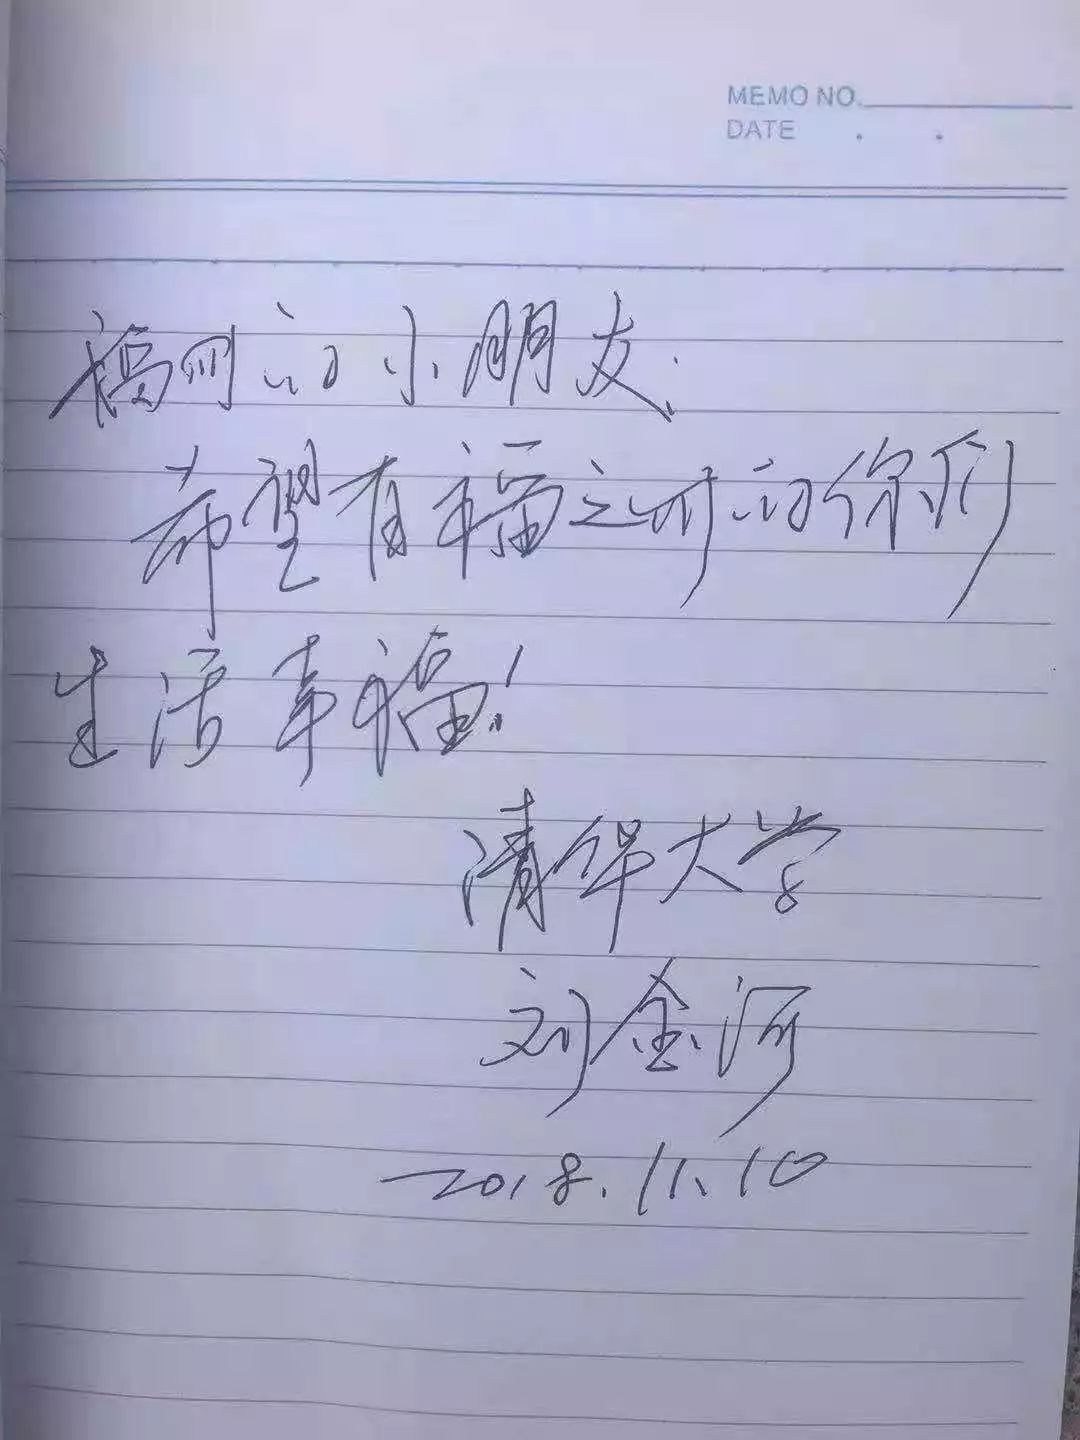 MEMO NO.
DATE . .
福州的小朋友:
希望有福之州的你们
生活幸福!
清华大学
刘金河
2018.11.10